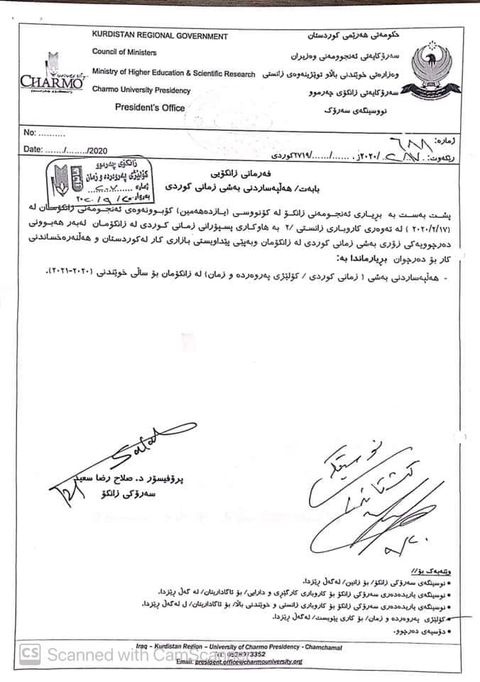 KURDISTAN REGIONAL GOVERNMENT
Council of Ministers
Ministry of Higher Education & Scientific Research
Charmo University Presidency
President's Office
university
CHARMO
حکومەتی هەرێمی کوردستان
سەرۆکایەتی ئەنجوومەنی وەزیران
وەزارەتی خوێندنی باڵاو توێژینەوەی زانستی
سەرۆکایەتی زانکۆی چەرموو
نووسینگەی سەرۆک
No: ..........
Date: ....../......../2020
ژمارە:
ڕێکەوت:
٢٠٢٠/
٢٧١٩/ کوردی
زانکۆی چەرموو
کۆلێژی پەروەردە و زمان
ژمارە
فەرمانی زانکۆیی
بابەت/ هەڵپەساردنی بەشی زمانی کوردی
پشت بەست بە بڕیاری ئەنجومەنی زانکۆ لە کۆنووسی (یازدەهەمین) کۆبوونەوەی ئەنجومەنی زانکۆستان لە
(٢٠٢٠/٢/١٧) لە تەوەری کاروباری زانستی /٢ بە هاوکاری سپۆرانی زمانی کوردی لە زانکۆمان لەبەر هەبوونی
دەرچوویەکی زۆری بەشی زمانی کوردی لە زانکۆمان وبەپێی پێداویستی بازاری کار لەکوردستان و هەڵنەرەخساندنی
کار بۆ دەرچوان بڕیارماندا بە:
- هەڵپەساردنی بەشی ( زمانی کوردی / کۆلێژی پەروەردە و زمان) لە زانکۆمان بۆ ساڵی خوێندنی (٢٠٢٠-٢٠٢١).
پرۆفیسۆر د. صلاح رضا سعید
سەرۆکی زانکۆ
وێنەیەک بۆ//
• نوسینگەی سەرۆکی زانکۆ/ بۆ زانین/ لەگەڵ ڕێزدا.
• نوسینگەی یاریدەدەری سەرۆکی زانکۆ بۆ کاروباری کارگێڕی و دارایی/ بۆ ئاگاداریتان/ لە گەڵ ڕێزدا.
• نوسینگەی یاریدەدەری سەرۆکی زانکۆ بۆ کاروباری زانستی و خوێندنی باڵا/ بۆ ئاگاداریتان/ ل لەگەڵ ڕێزدا.
• کۆلێژی پەروەردە و زمان/ بۆ کاری پێویست/ لەگەڵ ڕێزدا.
• دۆسیەی دەرچوو.
Iraq - Kurdistan Region - University of Charmo Presidency - Chamchamal
Email: president.office@charmouniversity.org
CS Scanned with CamScanner